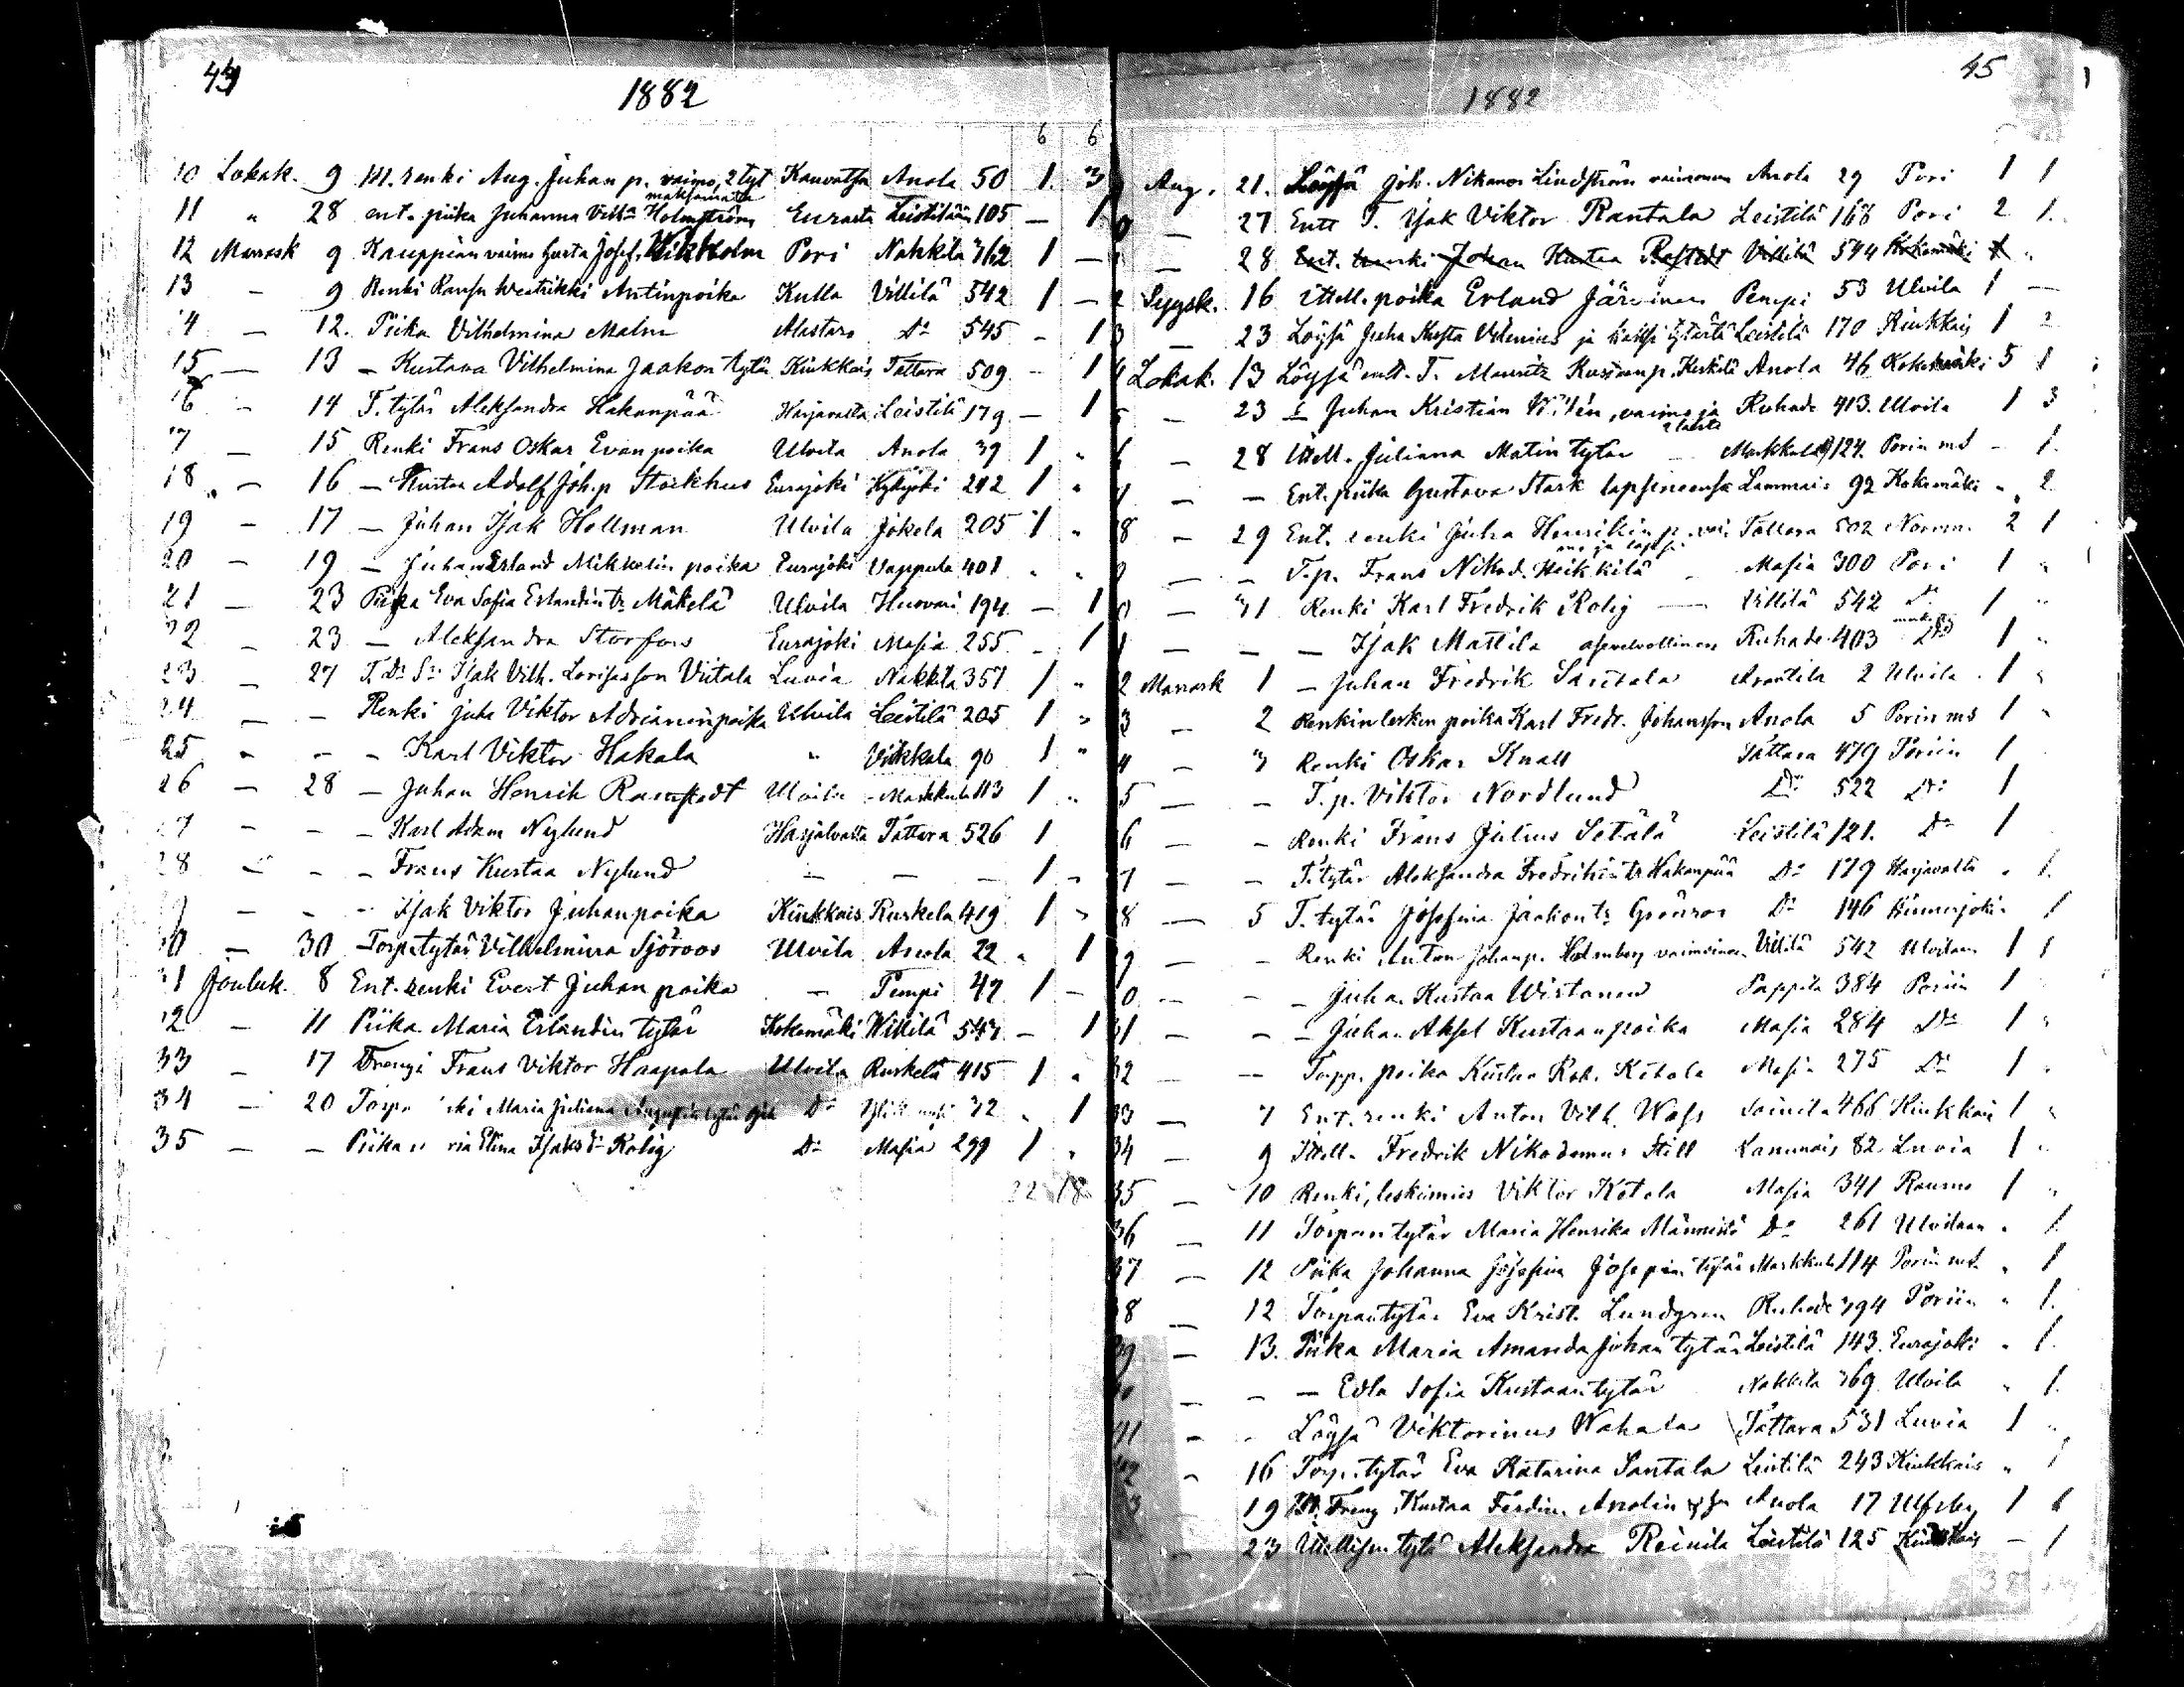 1882
6 6
10 Lokak. 9 M. renki Aug. Juhan p. vaimo, 2 tyt Kauvatsa Anola 50 1. 3
11 " 28 ent. piika Juhanna Vilh:a Holmström Eurasta Leistilään 105 — 1
12 Marrask 9 Kauppian vaimo Josef. Wikholm Pori Nakkila 362 1 —
13 - 9 Renki Antinpoika Kulla Villilä 542 1 —
14 — 12. Piika Vilhelmina Malm Alastaro D:o 545 - 1
15 — 13 — Kustava Vilhelmina Jaakon tytär Kiukkais Tattara 509 - 1
16 - 14 T. tytär Aleksandra Hakanpää Harjavalta Leistilä 179 — 1
17 — 15 Renki Frans Oskar Evanpoika Ulvila Anola 39 1 "
18 - 16 — Kustaa Adolf Joh.p Stockhus Eurajoki 242 1 "
19 - 17 — Juhan Isak Hellman Ulvila Jokela 205 1 "
20 — 19 — Juhan Erland Mikkelin poika Eurajoki Vappula 401 " "
21 — 23 Piika Eva Sofia Erlandin tr Mäkelä Ulvila Huovari 194 — 1
22 - 23 — Aleksandra Storfors Eurajoki Masia 255 - 1
23 — 27 Isak Vilh. Viitala Luvia Nakkila 357 1 "
24 — - Renki Juha Viktor Adrianinpoika Ulvila Leistilä 205 1 "
25 " - - Karl Viktor Hakala " Viikkala 90 1 "
26 — 28 — Juhan Henrik Ramstedt Ulvila Markkula 113 1 "
27 - - - Karl Adam Nylund Harjavalta Tattara 526 1
28 - - - Frans Kustaa Nylund — — — 1 "
— - - Isak Viktor Juhanpoika Kiukkais Ruskela 419 1 "
30 — 30 Torp. tytär Vilhelmiina Sjöroos Ulvila Anola 22 " 1
31 Jouluk. 8 Ent. renki Evert Juhan poika — Pempi 47 1 —
32 - 11 Piika Maria Erlandin tytär Kokemäki Villilä 543 — 1
33 — 17 Drengi Frans Viktor Haapala Ulvila Ruskela 415 1 "
34 — 20 Maria Juliana D:o 32 " 1
35 — — Piika Elina Isaks d:r Rolig D:o Masia 299 1 "
22 18
45
1882
Aug. 21. Löysä Joh. Nikanor Lindström vaimonen Anola 29 Pori 1 1
— 27 Ent T. Isak Viktor Rantala Leistilä 168 Pori 2 1.
— 28 Ent. renki Johan Kustaa Villilä 544 Kokemäki 1 "
Syysk. 16 Itsell. poika Erland Järvinen Pempi 53 Ulvila 1 —
— 23 Löysä Juha Kusta Videnius ja kaksi tytärtä Leistilä 170 Kiukkais 1 2
Lokak. 13 Löysä entt. T. Mauritz Anola 46 Kokemäki 5 1
— 23 Juhan Kristian vaimo ja Ruhade 413. Ulvila 1 3
2 lasta
— 28 Itsell. Juliana Matin tytär — Markkula 124. Porin ms - 1.
— - Ent. piika Gustava Stark lapsineensa Lammais 92 Kokemäki " 2
8 - 29 Ent. renki Juha Henrikin p. vai- Tattara 502 Norrm. 2 1
mo ja lapsi
— - T.p. Frans Nikod. Heikkilä — Masia 300 Pori 1 "
— 31 Renki Karl Fredrik Rolig — Villilä 542 D:o 1 "
— - — Isak Mattila asevelvollinen Ruhade 403 D:o 1 "
2 Marrask 1 — Juhan Fredrik Santala Arantila 2 Ulvila 1 "
3 - 2 Renkin lesken poika Karl Fredr. Johansson Anola 5 Porin ms 1 "
4 - 3 Renki Oskar Knall Tattara 479 Poriin 1
5 — - T.p. Viktor Nordlund D:o 522 D:o 1
6 — - Renki Frans Julius Setälä Leistilä 121. D:o 1
7 — — T. tytär Aleksandra Fredrikin tr Hakanpää D:o 179 Harjavalta " 1.
8 — 5 T. tytär Josefina Jaakon tr Grönroos D:o 146 Hinnerjoki 1
9 — - Renki Anton Johanp. Holmberg vaimoineen Villilä 542 Ulvilaan 1 1
0 — - — Juha Kustaa Wistanen Pappila 384 Poriin 1
31 - — Juhan Aksel Kustaanpoika Masia 284 D:o 1 "
32 — — Torpp. poika Kustaa Rob. Kitola Masia 275 D:o 1 "
33 — 7 Ent. renki Anton Vilh. Wass Soinila 466 Kiukkais 1 "
34 - 9 Itsell. Fredrik Nikodemus Still Lammais 82 Luvia 1 "
35 — 10 Renki, leskimies Viktor Kotola Masia 341 Rauma 1 "
36 — 11 Torpan tytär Maria Henrika Männistö D:o 261 Ulvilaan " 1
37 — 12 Piika Johanna Josefina Josepin tytär Markkula 114 Porin ms " 1
38 — 12 Torpantytär Eva Krist. Lundgren Ruhade 394 Poriin " 1.
39 — 13. Piika Maria Amanda Juhan tytär Leistilä 143. Eurajoki " 1.
— - — Edla Sofia Kustaantytär Nakkila 369 Ulvila " 1.
41 - - Löysä Viktorinus Wahala Tattara 531 Luvia 1 "
42 - 16 Torp. tytär Eva Katarina Santala Leistilä 243 Kiukkais " 1
19 Kustaa Ferdin. Anolin Anola 17 Ulfsby 1 6
— 23 Itsellisen tytär Aleksandra Reinila Leistilä 125 Kiukkais — 1